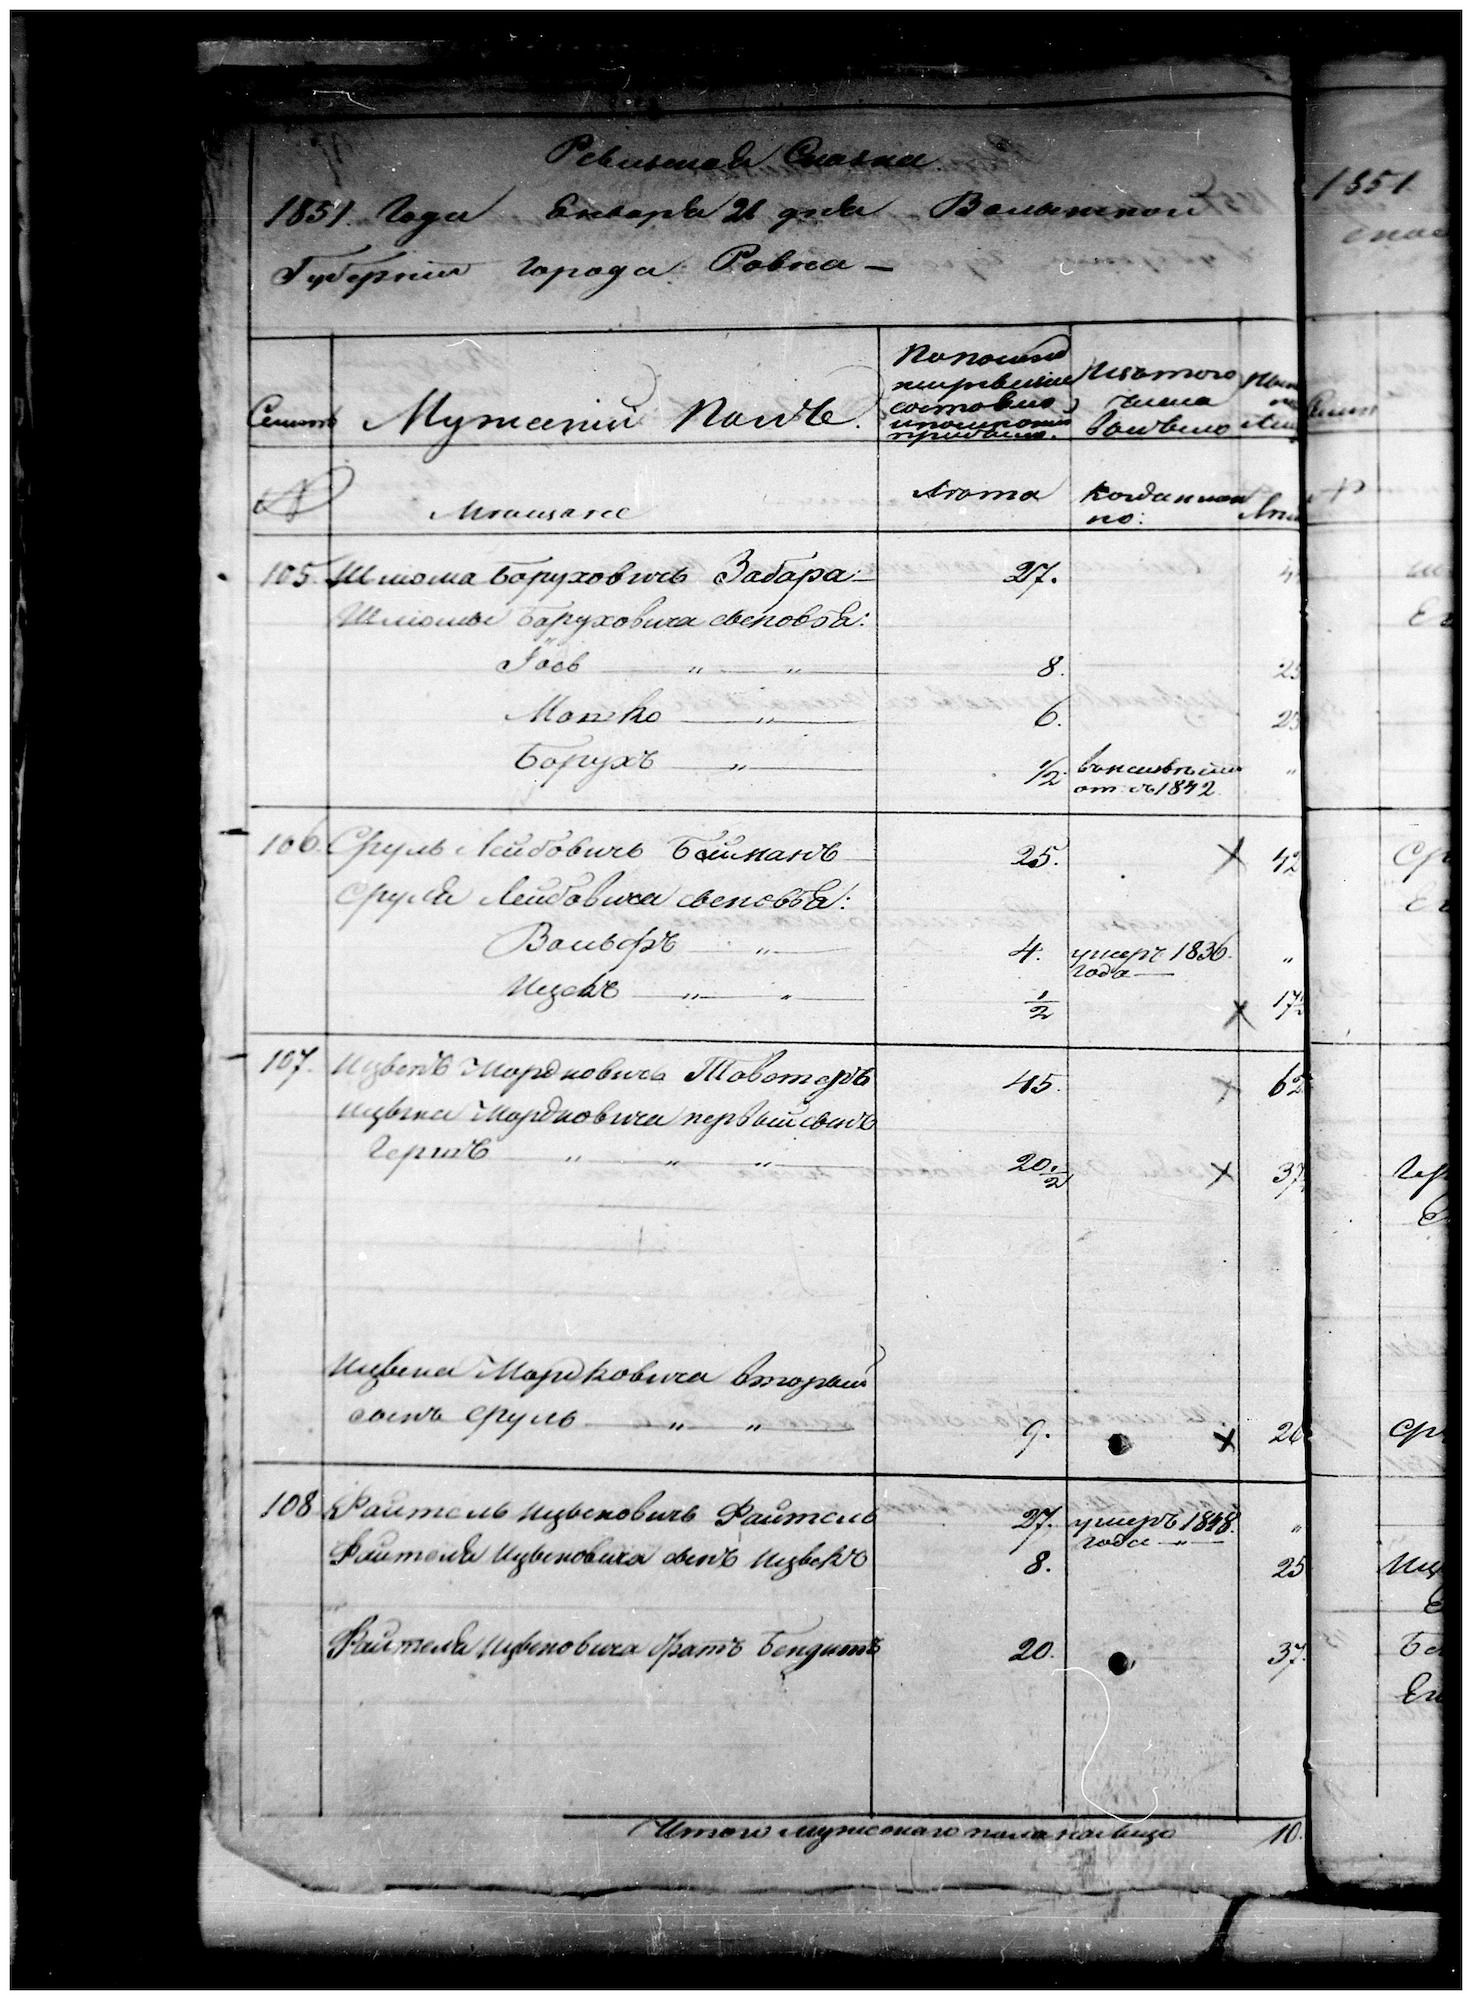 Ревизская Сказка
1851 Года Енваря 21 дня Волынской
Губернии Города Ровна —
Семьи
Мужеский Полъ.
По последней
ревизии
состояло
и после того
прибыло.
Изъ того
числа
выбыло
Ныне
№
Мещане
Лета
Когда именно:
Лета
105. Шлиома Боруховичь Забара 27.
Шлиомы Боруховича сыновья:
Иось " " 8. 25
Мошко " 6. 23
Борухъ " 1/2. "
от. въ 1842
106. Сруль Лейбовичь Бойманъ 25. × 42
Сруля Лейбовича сыновья:
Вольфъ " 4. умеръ 1836. "
Года
Ицекъ " " 1/2 × 17 1/2
107. Ицвекъ Мордковичь 45. × 62
Ицвека Мордковича первый сынъ
Гершъ " " " 20. 1/2 × 37
Ицвека Мордковича вторый
сынъ Сруль " " 9. × 26
108 Файтель Ицвековичь Файтель 27. умеръ 1848. "
Года "
Файтеля Ицвековича сынъ Ицвекъ 8. 25
Файтеля Ицвековича братъ Бендитъ 20. 37.
Итого мужескаго пола налицо 10.
1851
№
Ср
Гер
Сру
Иц
Бе
Ег